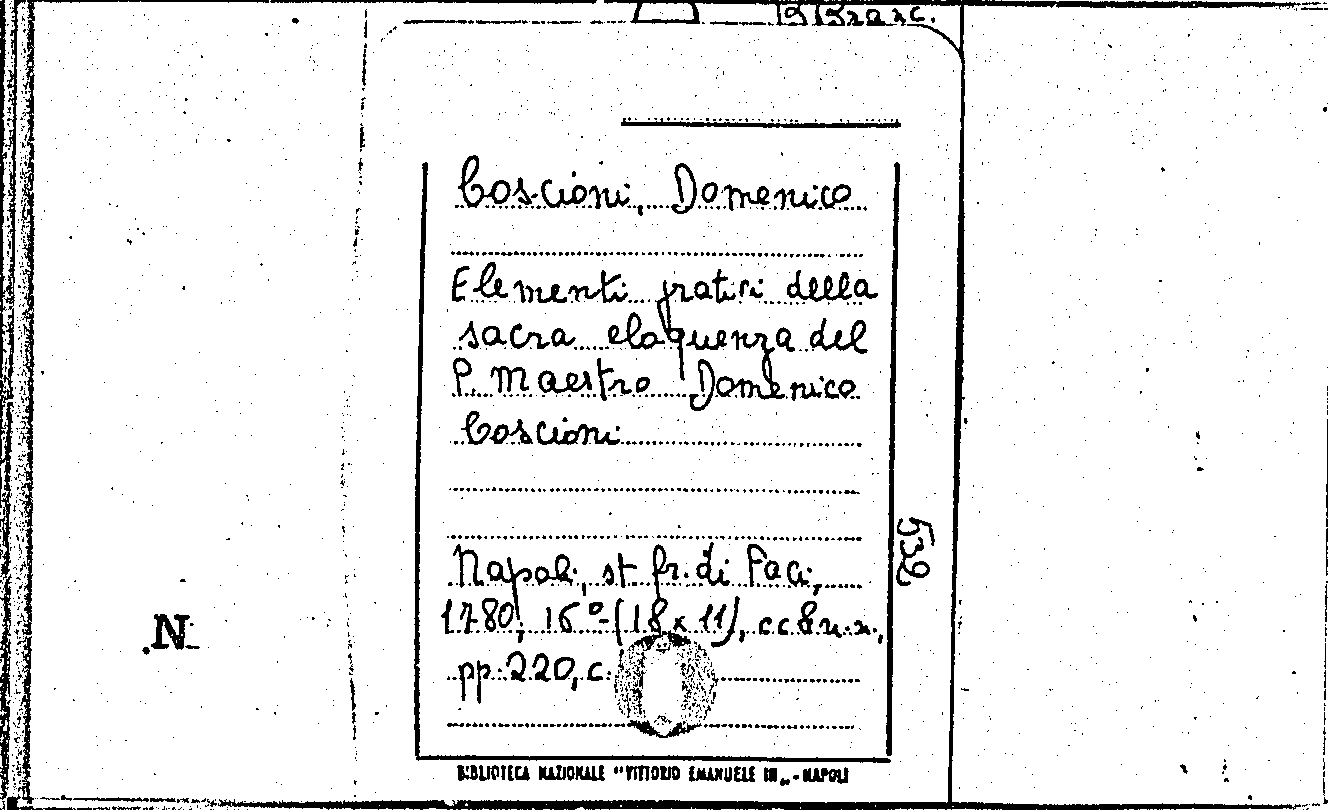 Coscioni, Domenico
Elementi pratici della
sacra eloquenza del
P. Maestro Domenico
Coscioni
532
Napoli, st. fr. di Paci,
1780, 16º-(18 x 11), cc 8 n.n.,
N
pp. 220, c.
BIBLIOTECA NAZIONALE "VITTORIO EMANUELE III" - NAPOLI